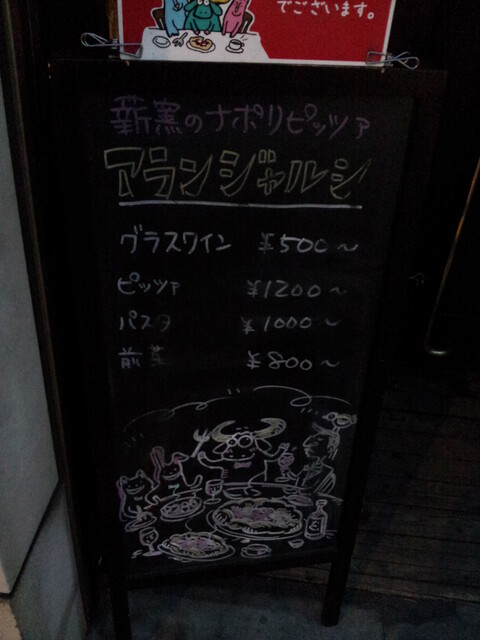 でございます。
薪窯のナポリピッツァ
アランジャルシ
グラスワイン ¥500〜
ピッツァ ¥1200〜
パスタ ¥1000〜
前菜 ¥800〜